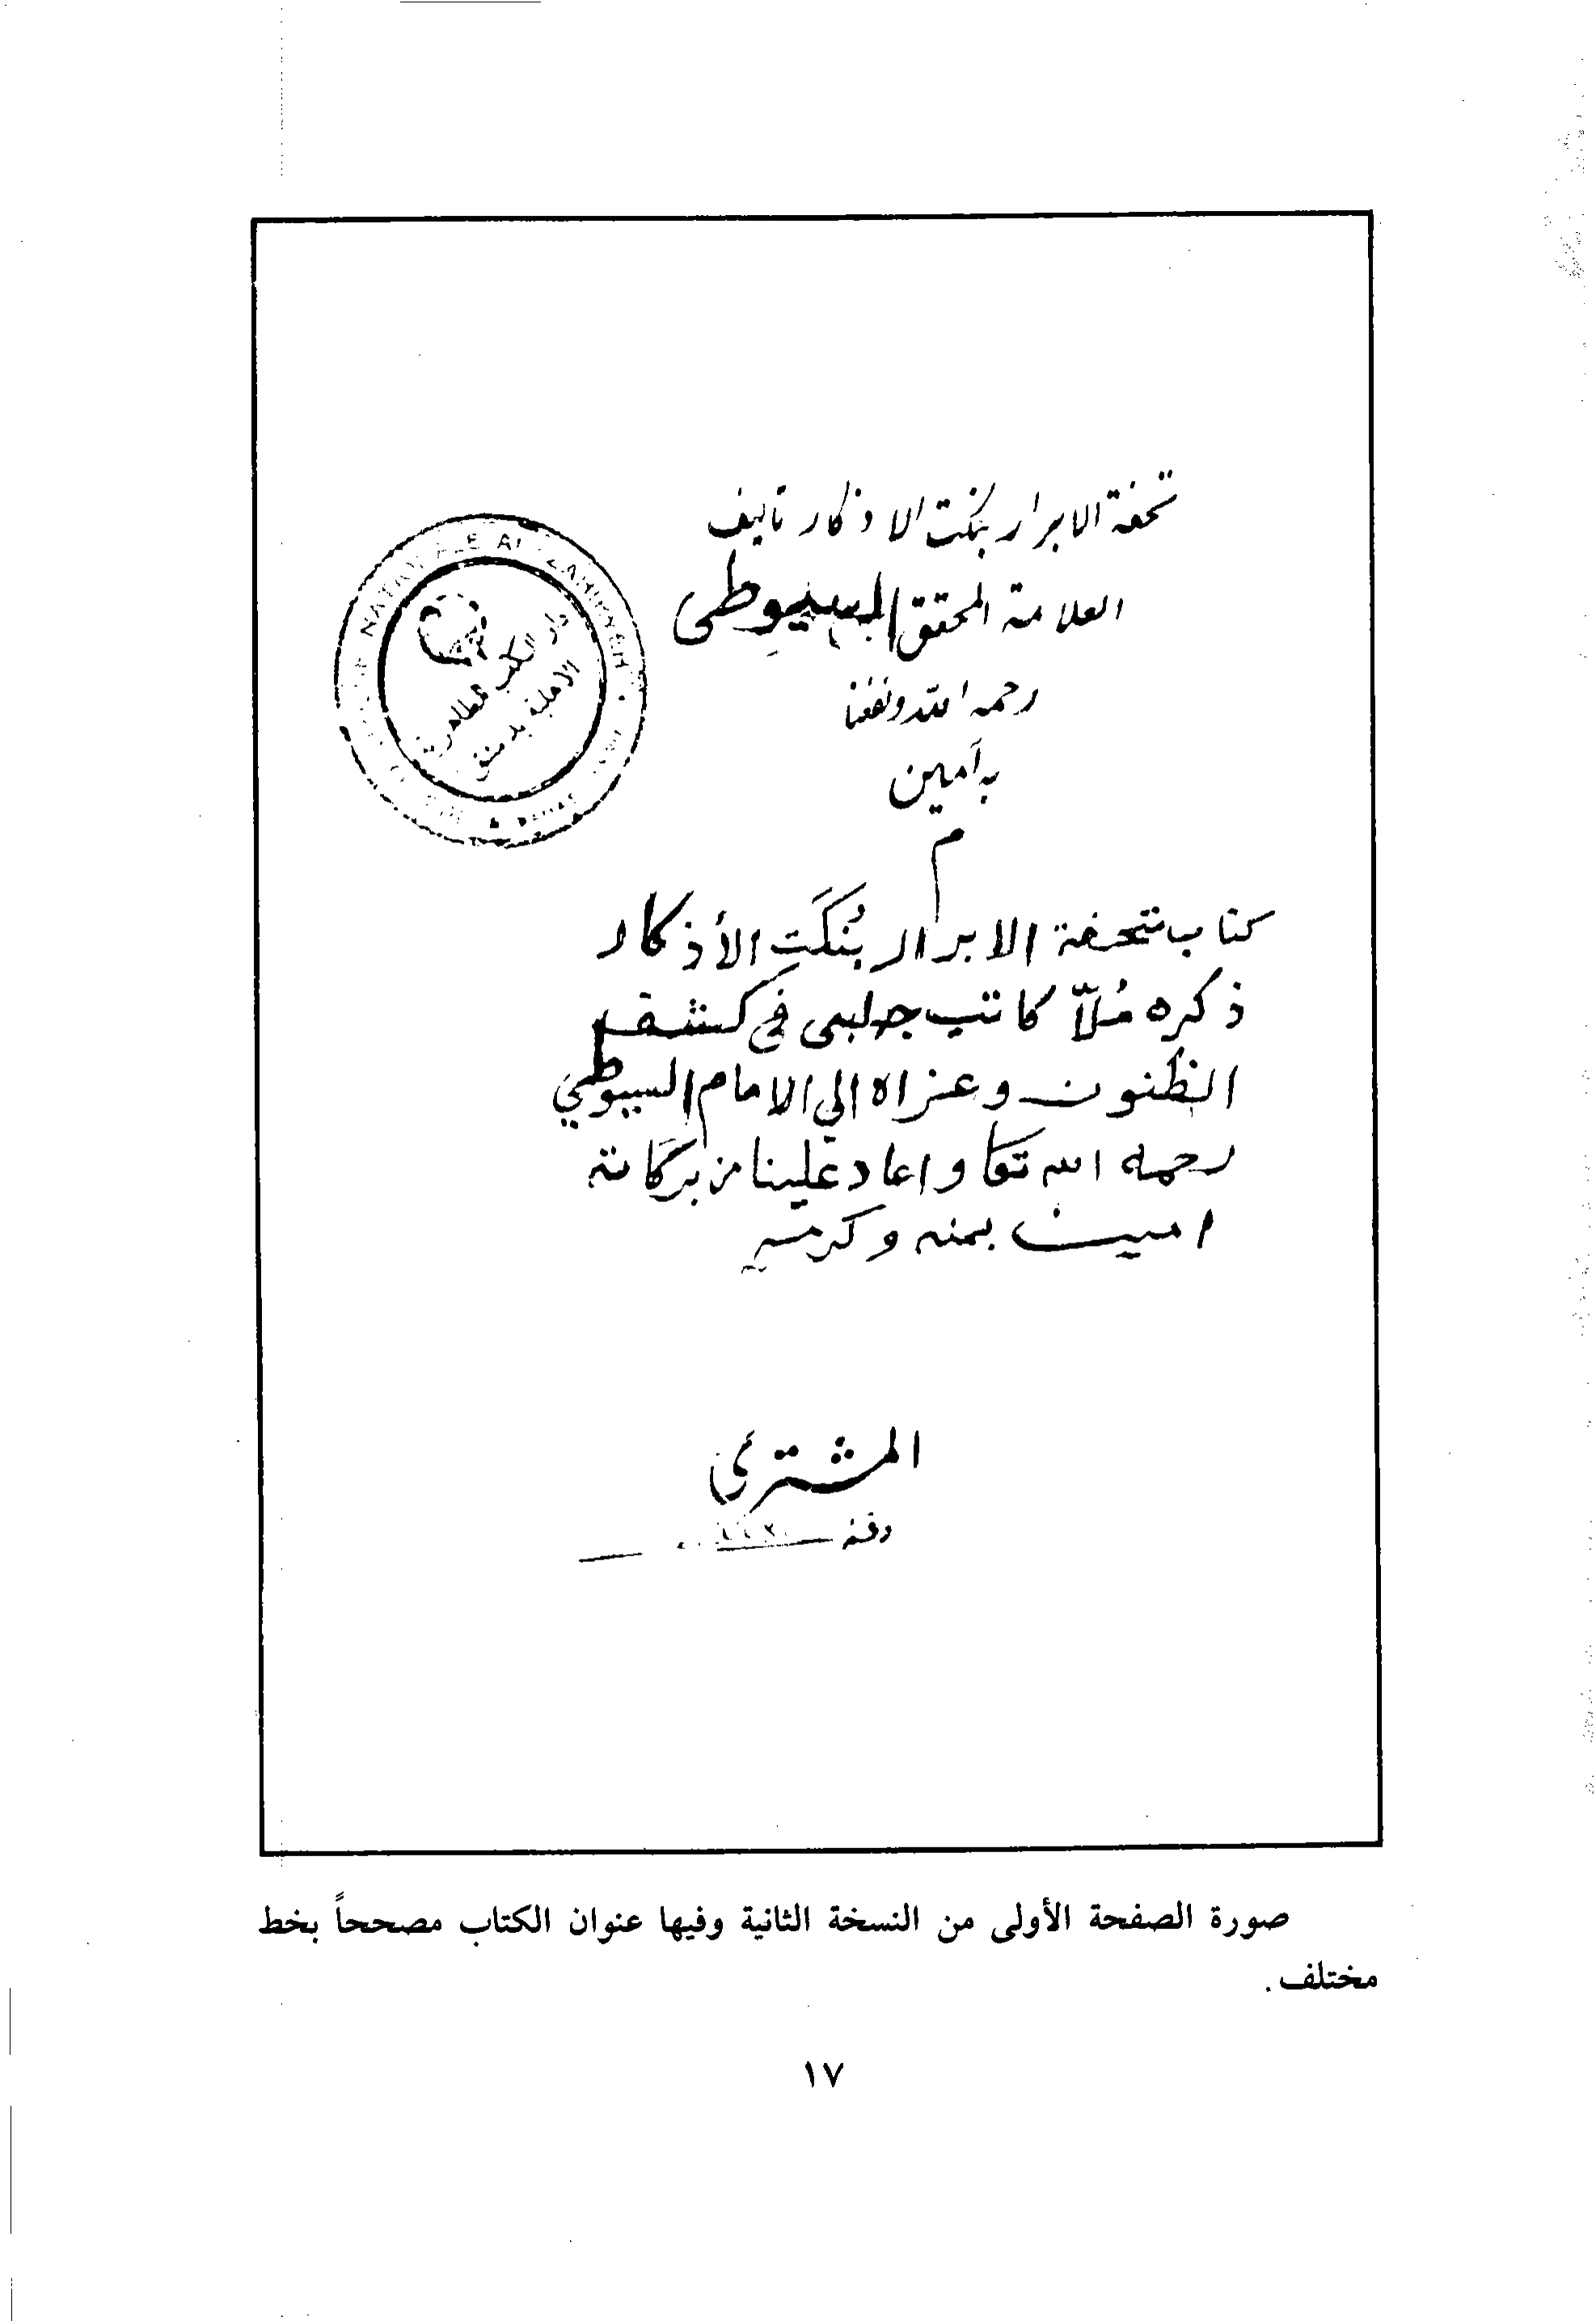 تحفة الابرار بنكت الاذكار تأليف
العلامة المحقق السيوطى
رحمه الله ونفعنا
به آمين
م
دار الكتب الظاهرية
الاهلية بدمشق
كتاب تحفة الابرار بنُكَتِ الأذكار
ذكره مُلاّ كاتب جلبى في كشف
الظنون وعزاه الي الامام السيوطي
رحمه الله تعا واعاد علينا من بركاته
امين بمنه وكرمه
المشتري
صورة الصفحة الأولى من النسخة الثانية وفيها عنوان الكتاب مصححاً بخط
مختلف.
١٧